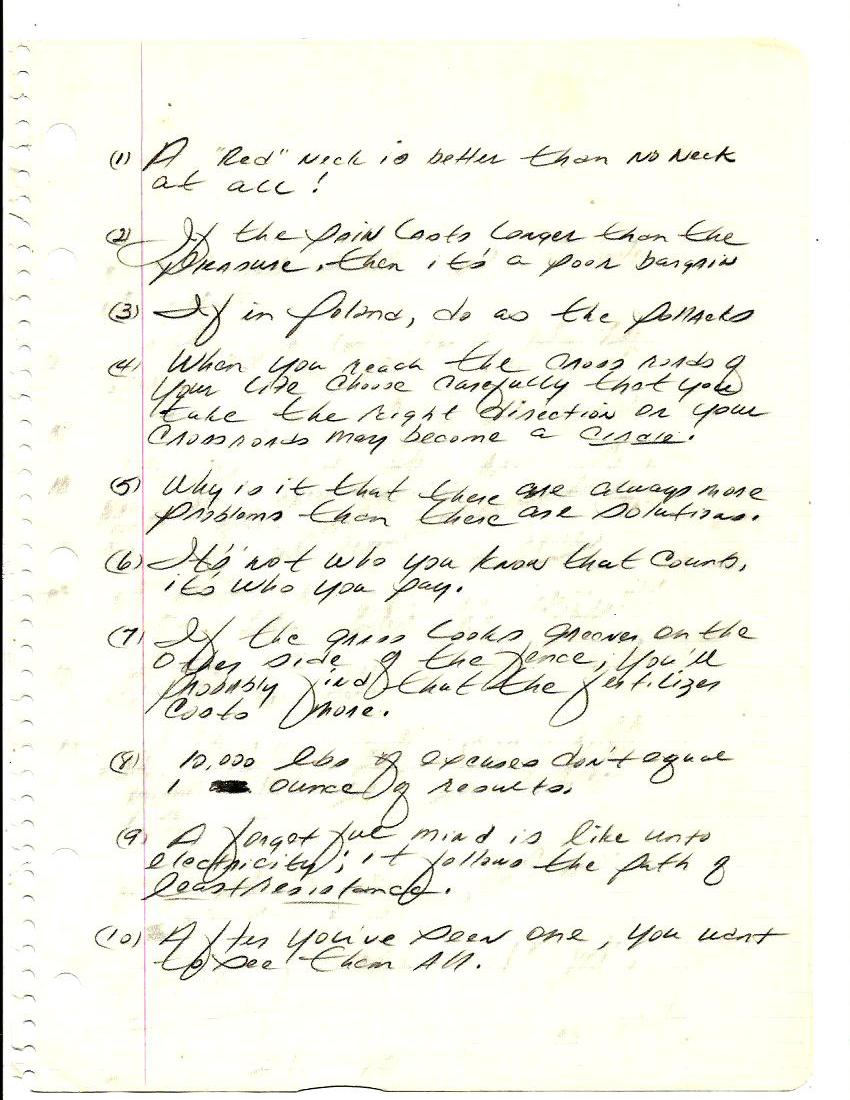 (1) A "Red" neck is better than no neck
at all!
(2) If the pain lasts longer than the
pleasure, then it's a poor bargain
(3) If in Poland, do as the pollacks
(4) When you reach the cross roads of
your life choose carefully that you
take the right direction or your
crossroads may become a circle.
(5) Why is it that there are always more
problems than there are solutions.
(6) It's not who you know that counts,
it's who you pay.
(7) If the grass looks greener on the
other side of the fence, you'll
probably find that the fertilizer
costs more.
(8) 10,000 lbs of excuses don't equal
1 ounce of results.
(9) A forgetful mind is like unto
electricity; it follows the path of
least resistance.
(10) After you've seen one, you want
to see them all.